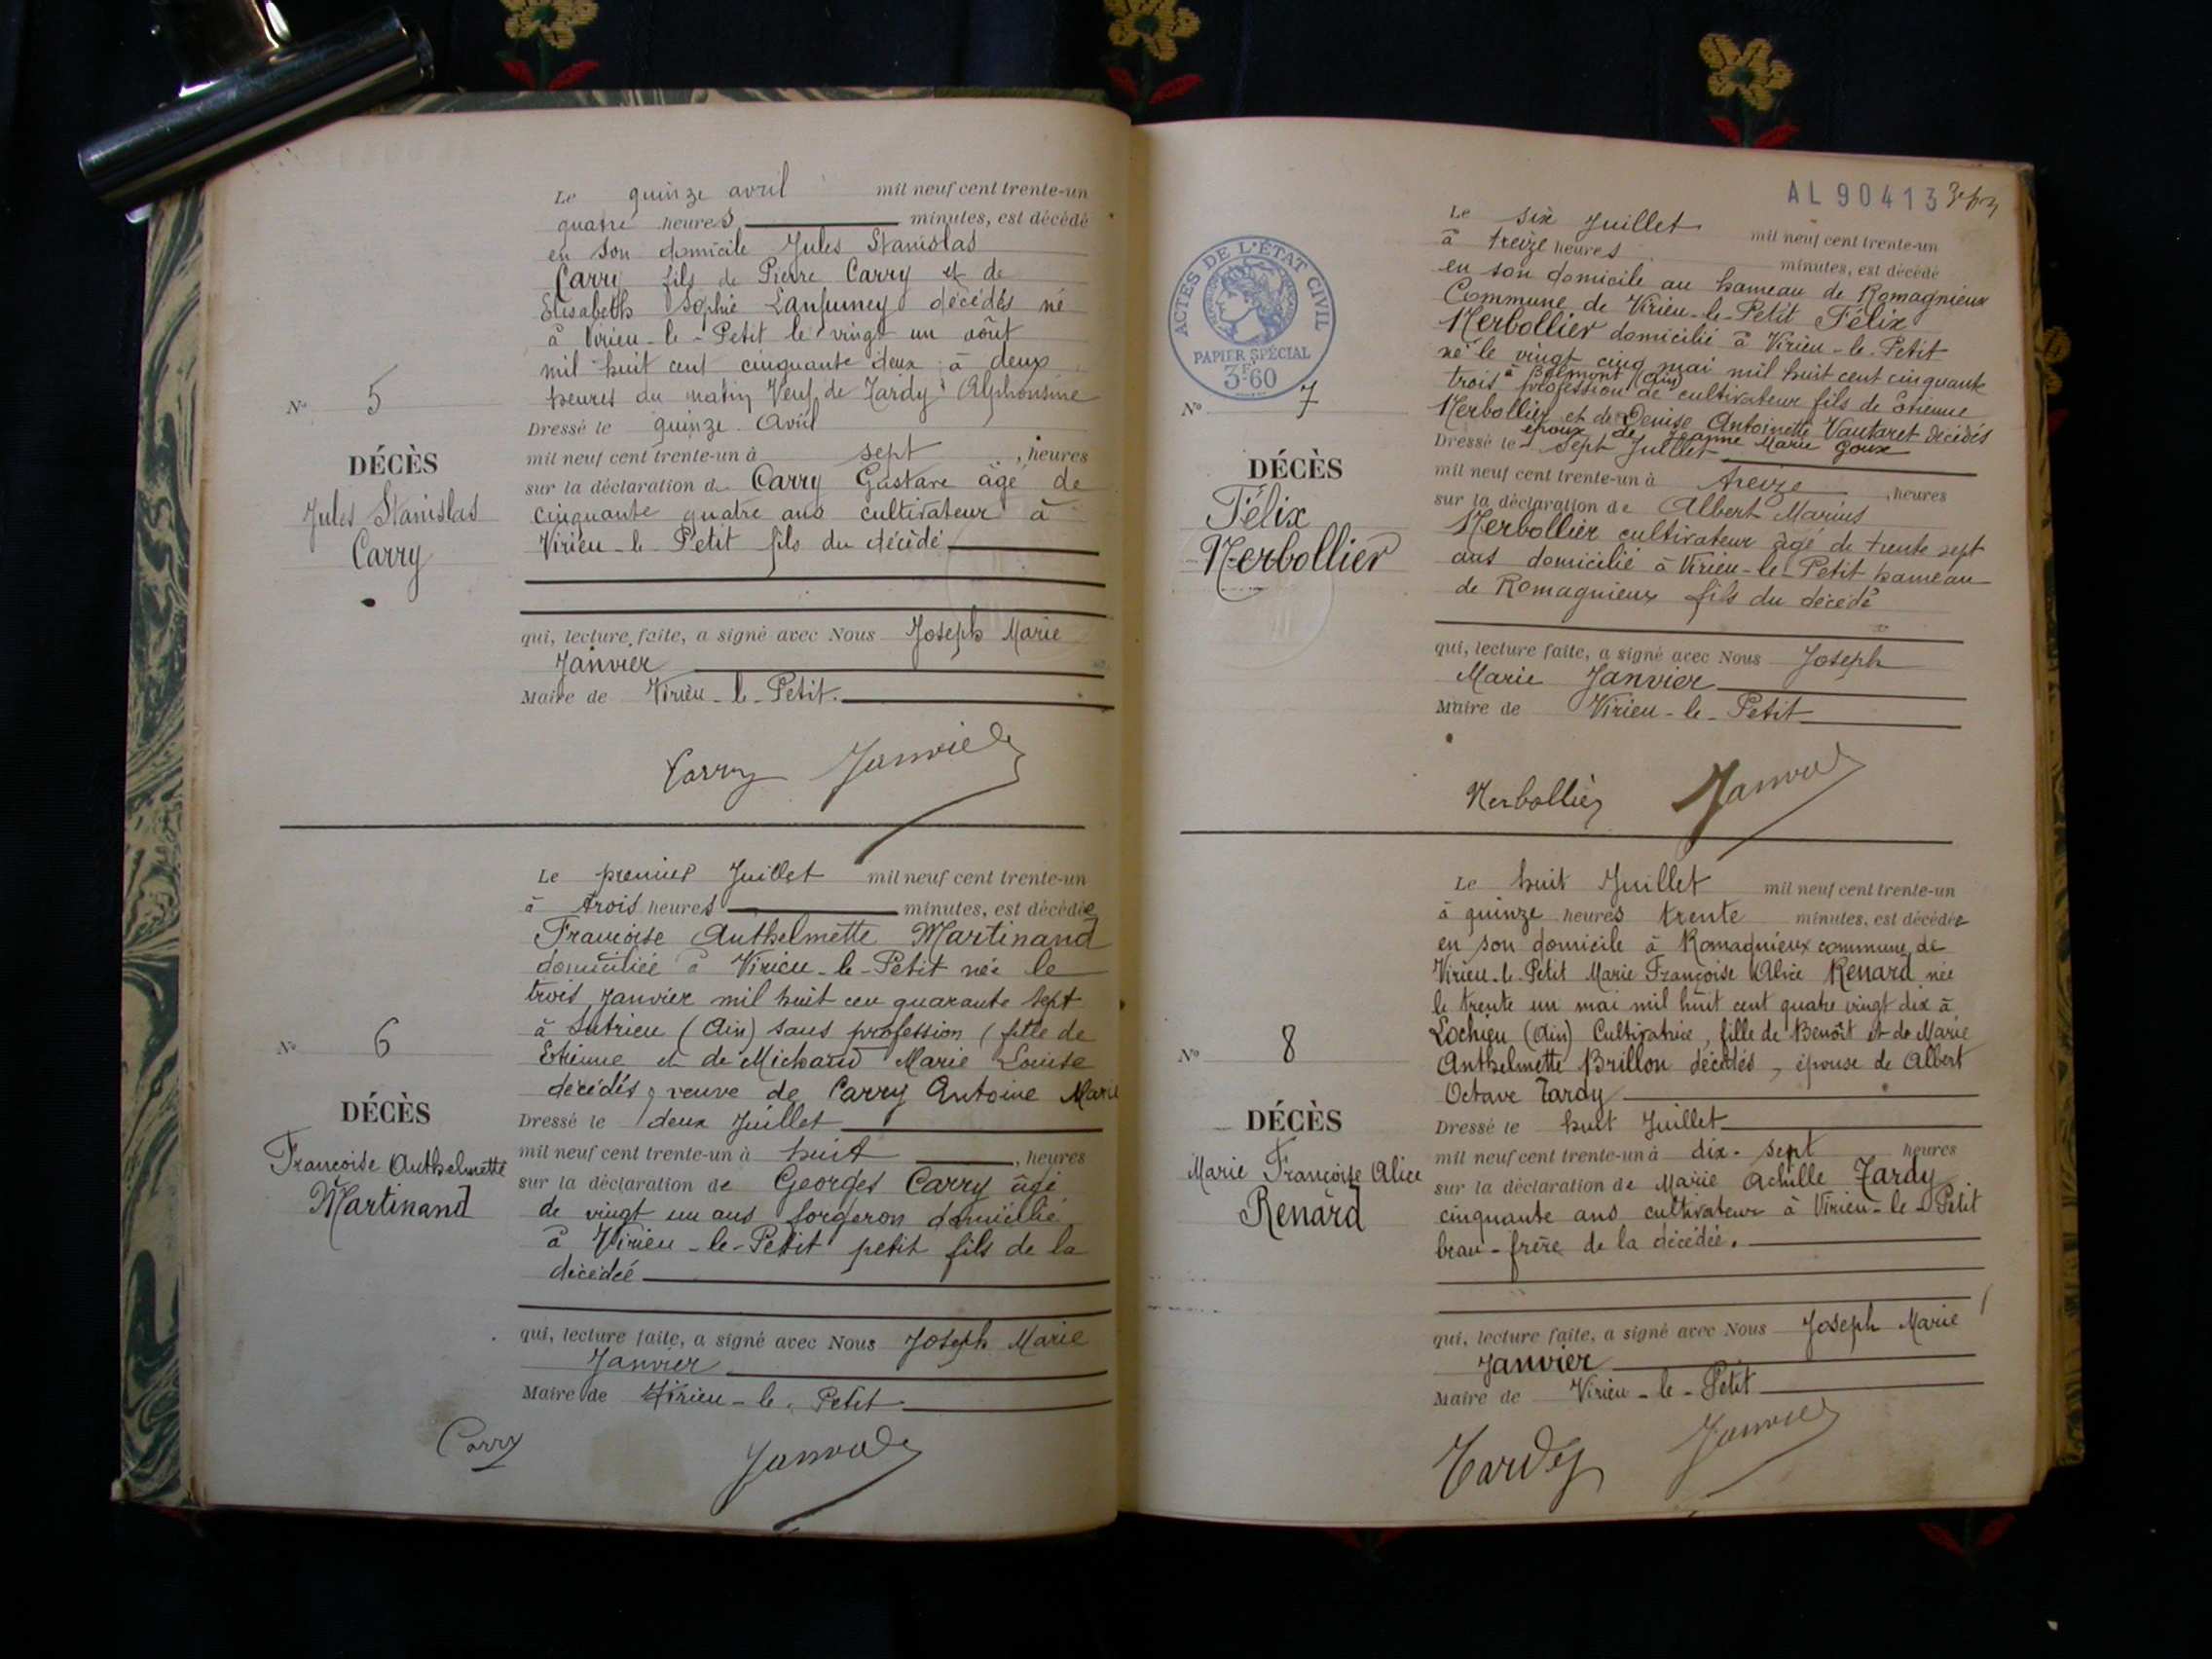 Le quinze avril mil neuf cent trente-un
quatre heures minutes, est décédé
en son domicile Jules Stanislas
Carry fils de Pierre Carry et de
Elisabeth Sophie décédés né
à Virieu-le-Petit le vingt un août
mil huit cent cinquante deux à deux
heures du matin Veuf de Tardy Alphonsine
Dressé le quinze Avril
mil neuf cent trente-un à sept, heures
sur la déclaration de Carry Gustave âgé de
cinquante quatre ans cultivateur à
Virieu-le-Petit fils du décédé
qui, lecture faite, a signé avec Nous Joseph Marie
Janvier
Maire de Virieu-le-Petit.
Carry Janvier
N° 5
DÉCÈS
Jules Stanislas
Carry
Le premier Juillet mil neuf cent trente-un
à trois heures minutes, est décédée
Françoise Anthelmette Martinand
domiciliée à Virieu-le-Petit née le
trois Janvier mil huit cen quarante sept
à Sutrieu (Ain) sans profession fille de
Etienne et de Michaud Marie Louise
décédés, veuve de Carry Antoine Marie
Dressé le deux Juillet
mil neuf cent trente-un à huit, heures
sur la déclaration de Georges Carry âgé
de vingt un ans forgeron domicilié
à Virieu-le-Petit petit fils de la
décédée
qui, lecture faite, a signé avec Nous Joseph Marie
Janvier
Maire de Virieu-le-Petit
Carry Janvier
N° 6
DÉCÈS
Françoise Anthelmette
Martinand
AL 90413
Le six Juillet mil neuf cent trente-un
à treize heures minutes, est décédé
en son domicile au hameau de Romagnieux
Commune de Virieu-le-Petit Félix
Merbollier domicilié à Virieu-le-Petit
né le vingt cinq mai mil huit cent cinquante
à Belmont (Ain)
trois profession de cultivateur fils de Etienne
Merbollier et de Denise Antoinette Vautaret décédés
époux de Jeanne Marie Goux
Dressé le sept Juillet
mil neuf cent trente-un à treize, heures
sur la déclaration de Albert Marius
Merbollier cultivateur âgé de trente sept
ans domicilié à Virieu-le-Petit hameau
de Romagnieux fils du décédé
qui, lecture faite, a signé avec Nous Joseph
Marie Janvier
Maire de Virieu-le-Petit
Merbollier Janvier
ACTES DE L'ÉTAT CIVIL
PAPIER SPÉCIAL
3F60
N° 7
DÉCÈS
Félix
Merbollier
Le huit Juillet mil neuf cent trente-un
à quinze heures trente minutes, est décédée
en son domicile à Romagnieux commune de
Virieu-le-Petit Marie Françoise Alice Renard née
le trente un mai mil huit cent quatre vingt dix à
Lochieu (Ain) Cultivatrice, fille de Benoît et de Marie
Anthelmette Brillon décédés, épouse de Albert
Octave Tardy
Dressé le huit Juillet
mil neuf cent trente-un à dix-sept heures
sur la déclaration de Marie Achille Tardy
cinquante ans cultivateur à Virieu-le-Petit
beau-frère de la décédée.
qui, lecture faite, a signé avec Nous Joseph Marie
Janvier
Maire de Virieu-le-Petit
Tardy Janvier
N° 8
DÉCÈS
Marie Françoise Alice
Renard